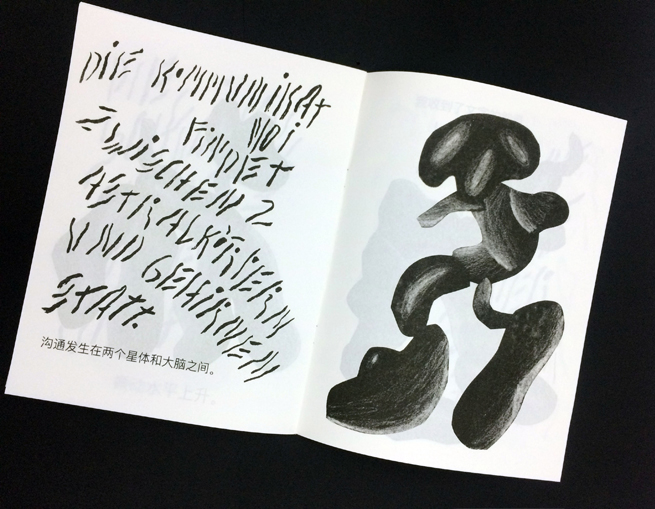 DIE KOMMUNIKAT
NOI
FINDET
ZWISCHEN 2
ASTRALKÖRPERN
UND GEHIRNEN
STATT.
沟通发生在两个星体和大脑之间。